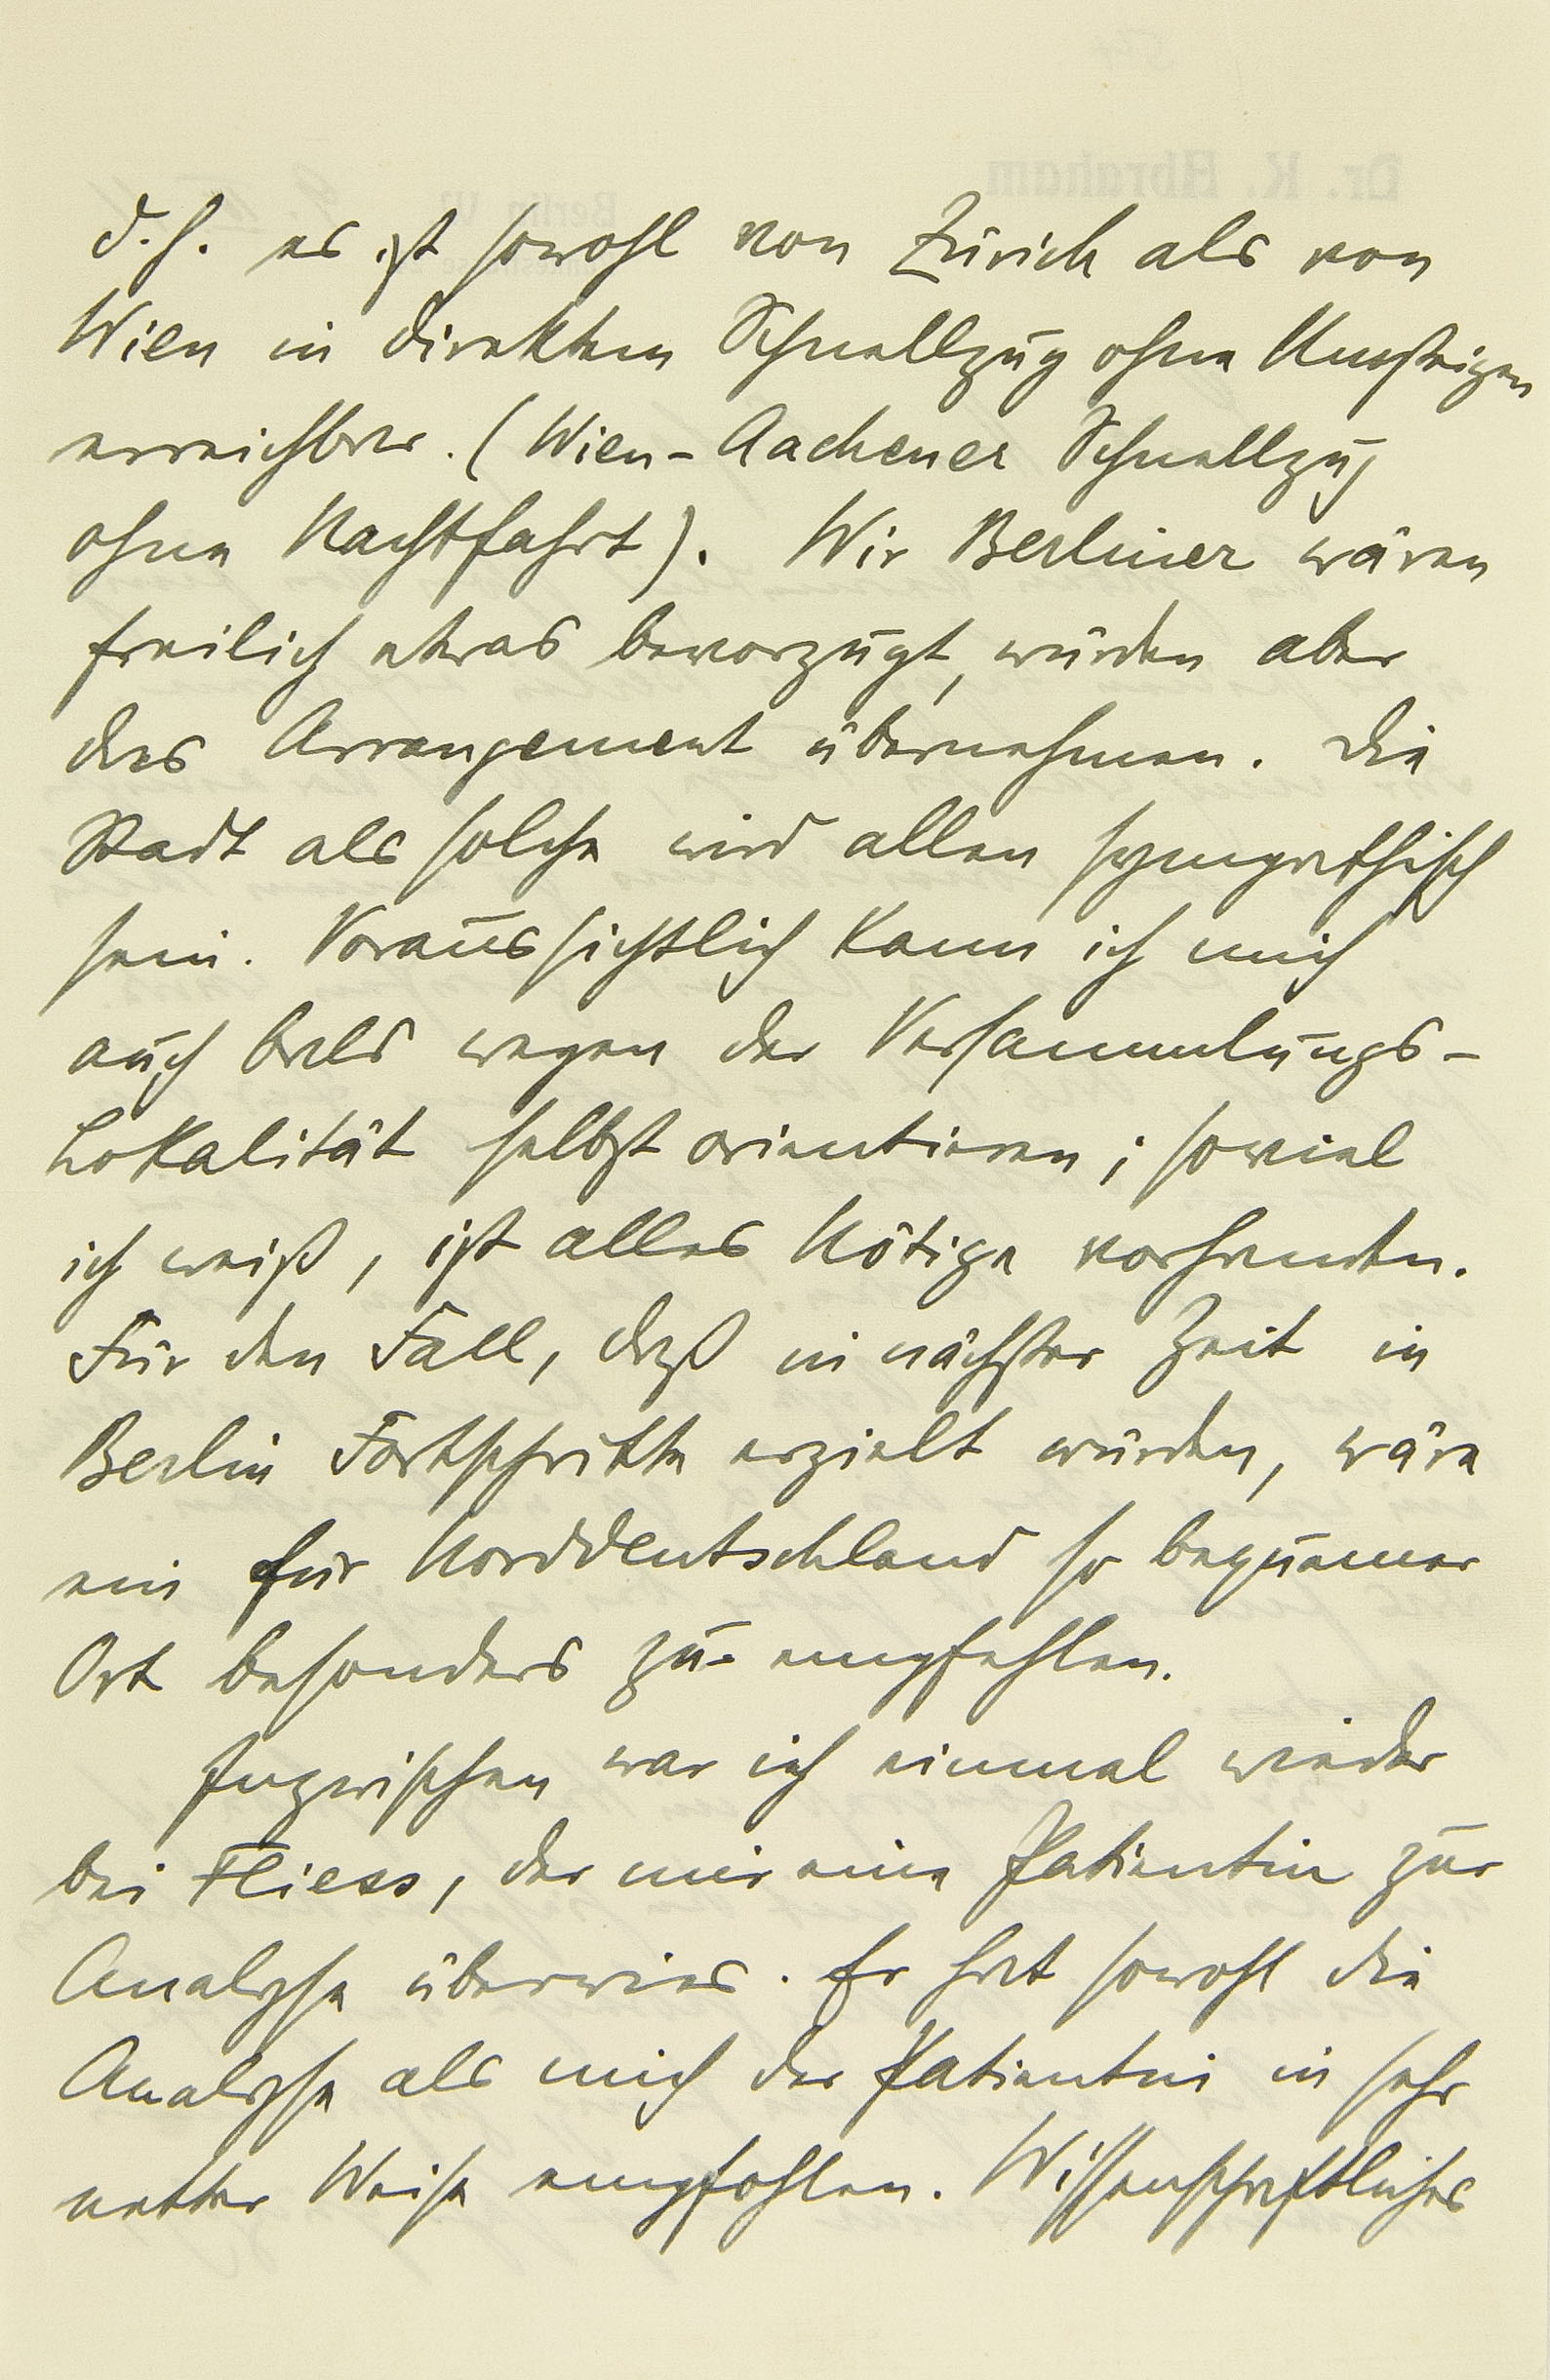 d.h. es ist sowohl von Zürich als von
Wien in direktem Schnellzug ohne Umsteigen
erreichbar. (Wien-Aachener Schnellzug
ohne Nachtfahrt). Wir Berliner wären
freilich etwas bevorzugt, würden aber
das Arrangement übernehmen. Die
Stadt als solche wird allen sympathisch
sein. Voraussichtlich kann ich mich
auch bald wegen der Versammlungs-
Lokalität selbst orientieren; soviel
ich weiß, ist alles Nötige vorhanden.
Für den Fall, daß in nächster Zeit in
Berlin Fortschritte erzielt würden, wäre
ein für Norddeutschland so bequemer
Ort besonders zu empfehlen.
Inzwischen war ich einmal wieder
bei Fliess, der mir eine Patientin zur
Analyse überwies. Er hat sowohl die
Analyse als mich der Patientin in sehr
netter Weise empfohlen. Wissenschaftliches